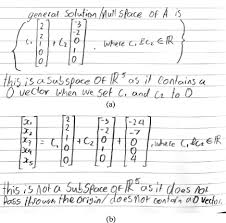 general solution/Null space of A is
{ c₁ [2 2 1 0 0] + c₂ [-3 -2 0 0 1] , where c₁ & c₂ ∈ ℝ }
this is a subspace of ℝ⁵ as it contains a
0 vector when we set c₁ and c₂ to 0
(a)
[x₁ x₂ x₃ x₄ x₅] = c₁ [2 2 1 0 0] + c₂ [-3 -2 0 0 1] + [-24 -7 0 0 4] , where c₁, c₂ ∈ ℝ
this is not a subspace of ℝ⁵ as it does not
pass through the origin/does not contain a 0 vector.
(b)